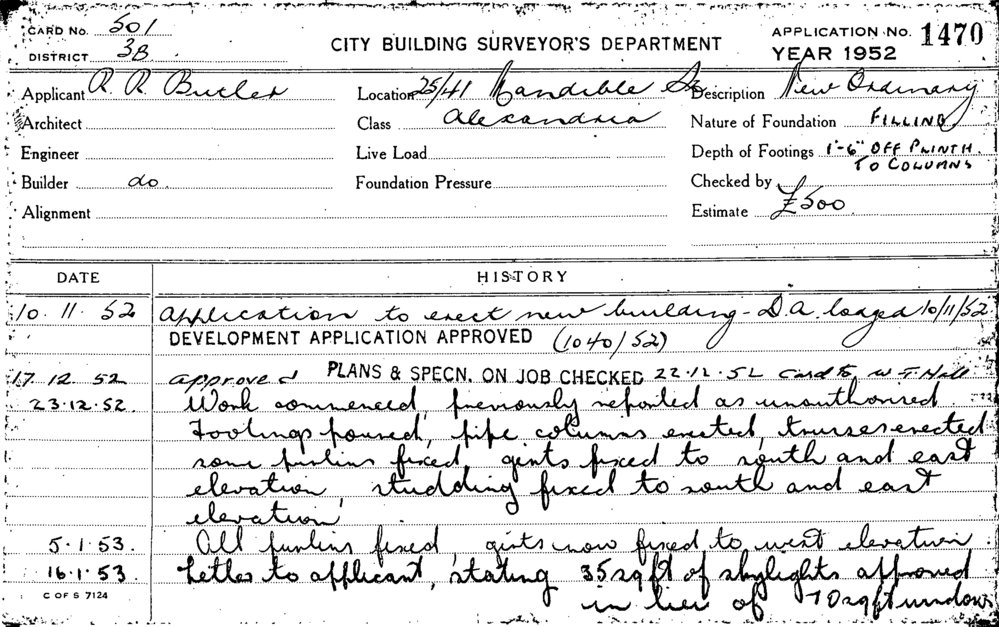 CARD No. 501
DISTRICT 3B
CITY BUILDING SURVEYOR'S DEPARTMENT
APPLICATION No. 1470
YEAR 1952
Applicant R. R. Butler
Location 25/41 Mandible St
Description New Ordinary
Architect
Class Alexandria
Nature of Foundation FILLING
Engineer
Live Load
Depth of Footings 1'-6" OFF PLINTH
TO COLUMNS
Builder do
Foundation Pressure
Checked by
Alignment
Estimate £500
DATE HISTORY
10.11.52 Application to erect new building - D.A. lodged 10/11/52
DEVELOPMENT APPLICATION APPROVED (1040/52)
17.12.52 approved PLANS & SPECN. ON JOB CHECKED 22.12.52 Card to W. J. Hall
23.12.52. Work commenced, previously reported as unauthorised
Footings poured, pipe columns erected, trusses erected
some purlins fixed, girts fixed to south and east
elevation, studding fixed to south and east
elevation
5.1.53. All purlins fixed, girts now fixed to west elevation
16.1.53 Letter to applicant, stating 35 sq ft of skylights approved
in lieu of 70 sq ft windows
C OF S 7124